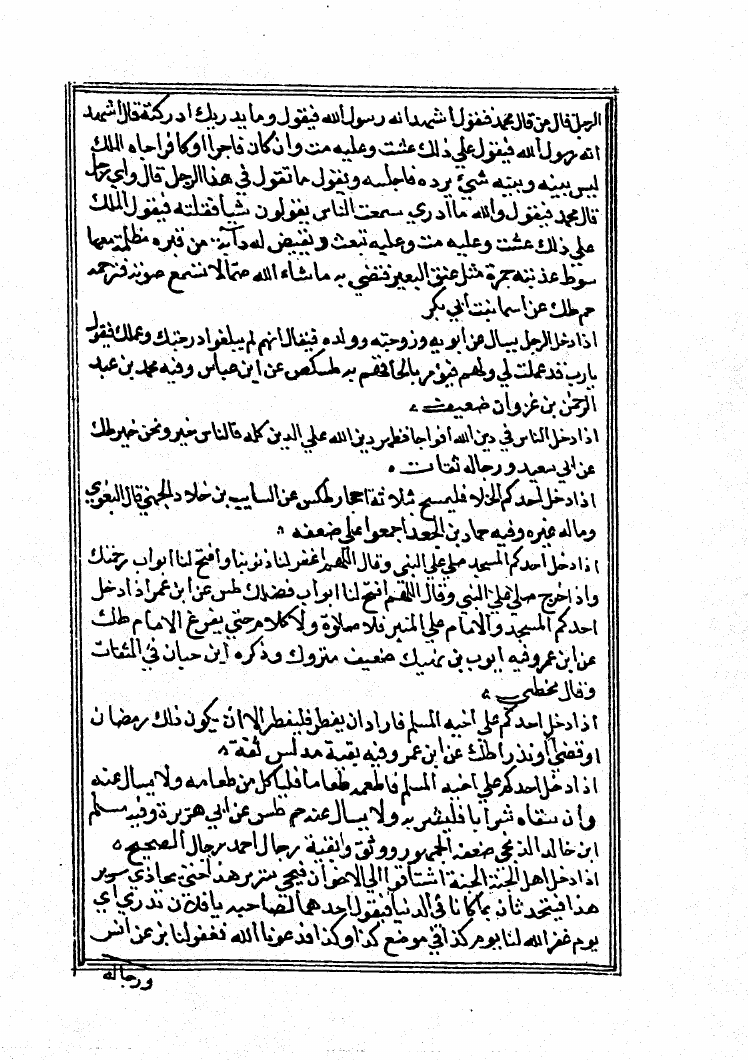 الرجل قال من قال محمد فيقول أشهد انه رسول الله فيقول وما يدريك ادركته قال أشهد
انه رسول الله فيقول علي ذلك عشت وعليه مت وعليه تبعث وان كان فاجرا اوكافرا جاه الملك
ليس بينه وبينه شيء يرده فاجلسه ويقول ما تقول في هذا الرجل قال واي رجل
قال محمد فيقول والله ما ادري سمعت الناس يقولون شيا فقلته فيقول الملك
علي ذلك عشت وعليه مت وعليه تبعث ويقيض له دابة من قبره مظلمة معها
سوط جمرة مثل عنق البعير به ما شاء الله صما لا تسمع صوته فترحمه
حم طك عن اسما بنت ابي بكر
اذا دخل الرجل يسال عن ابويه وزوجته وولده فيقال انهم لم يبلغوا درجتك وعملك فيقول
يارب قد عملت لي ولهم فيؤمر بالحاقهم به عن ابن عباس وفيه محمد بن عبد
الرحمن بن غزوان ضعيف
اذا دخل الناس في دين الله أفواجا دين الله علي الدين كله فالناس خير ونحن خير طك
عن ابي سعيد ورجاله ثقات
اذا دخل احدكم الخلا فليمسح بثلاثة احجار عن السايب بن خلاد الجهني قال البغوي
وماله غيره وفيه حماد بن الجعد اجمعوا علي ضعفه
اذا دخل احدكم المسجد صلي علي النبي وقال اللهم اغفر لنا ذنوبنا وافتح لنا ابواب رحمتك
واذا خرج صلي علي النبي وقال اللهم افتح لنا ابواب فضلك طس عن ابن عمر اذا دخل
احدكم المسجد والامام علي المنبر فلا صلوة ولا كلام حتي يفرغ الامام طك
عن ابن عمر وفيه ايوب بن نهيك ضعيف متروك وذكره ابن حبان في الثقات
وقال يخطي
اذا دخل احدكم علي اخيه المسلم فاراد ان يفطر فليفطر الا ان يكون ذلك رمضان
او قضا أو نذرا طك عن ابن عمر وفيه بقية مدلس ثقة
اذا دخل احدكم علي اخيه المسلم فاطعمه طعاما فلياكل من طعامه ولا يسال عنه
وان سقاه شرابا فليشربه ولا يسال عنه حم طس عن ابي هريرة وفيه مسلم
ابن خالد الزنجي ضعفه الجمهور ووثق وبقية رجال احمد رجال الصحيح
اذا دخل اهل الجنة الجنة اشتاقوا الي الاخوان فيجي سرير هذا حتي يحاذي سرير
هذا فيتحدثان بما كانا في الدنيا فيقول احدهما لصاحبه يا فلان تدري أي
يوم غفر الله لنا يوم كذا في موضع كذا وكذا فدعونا الله فغفر لنا بز عن انس
ورجاله